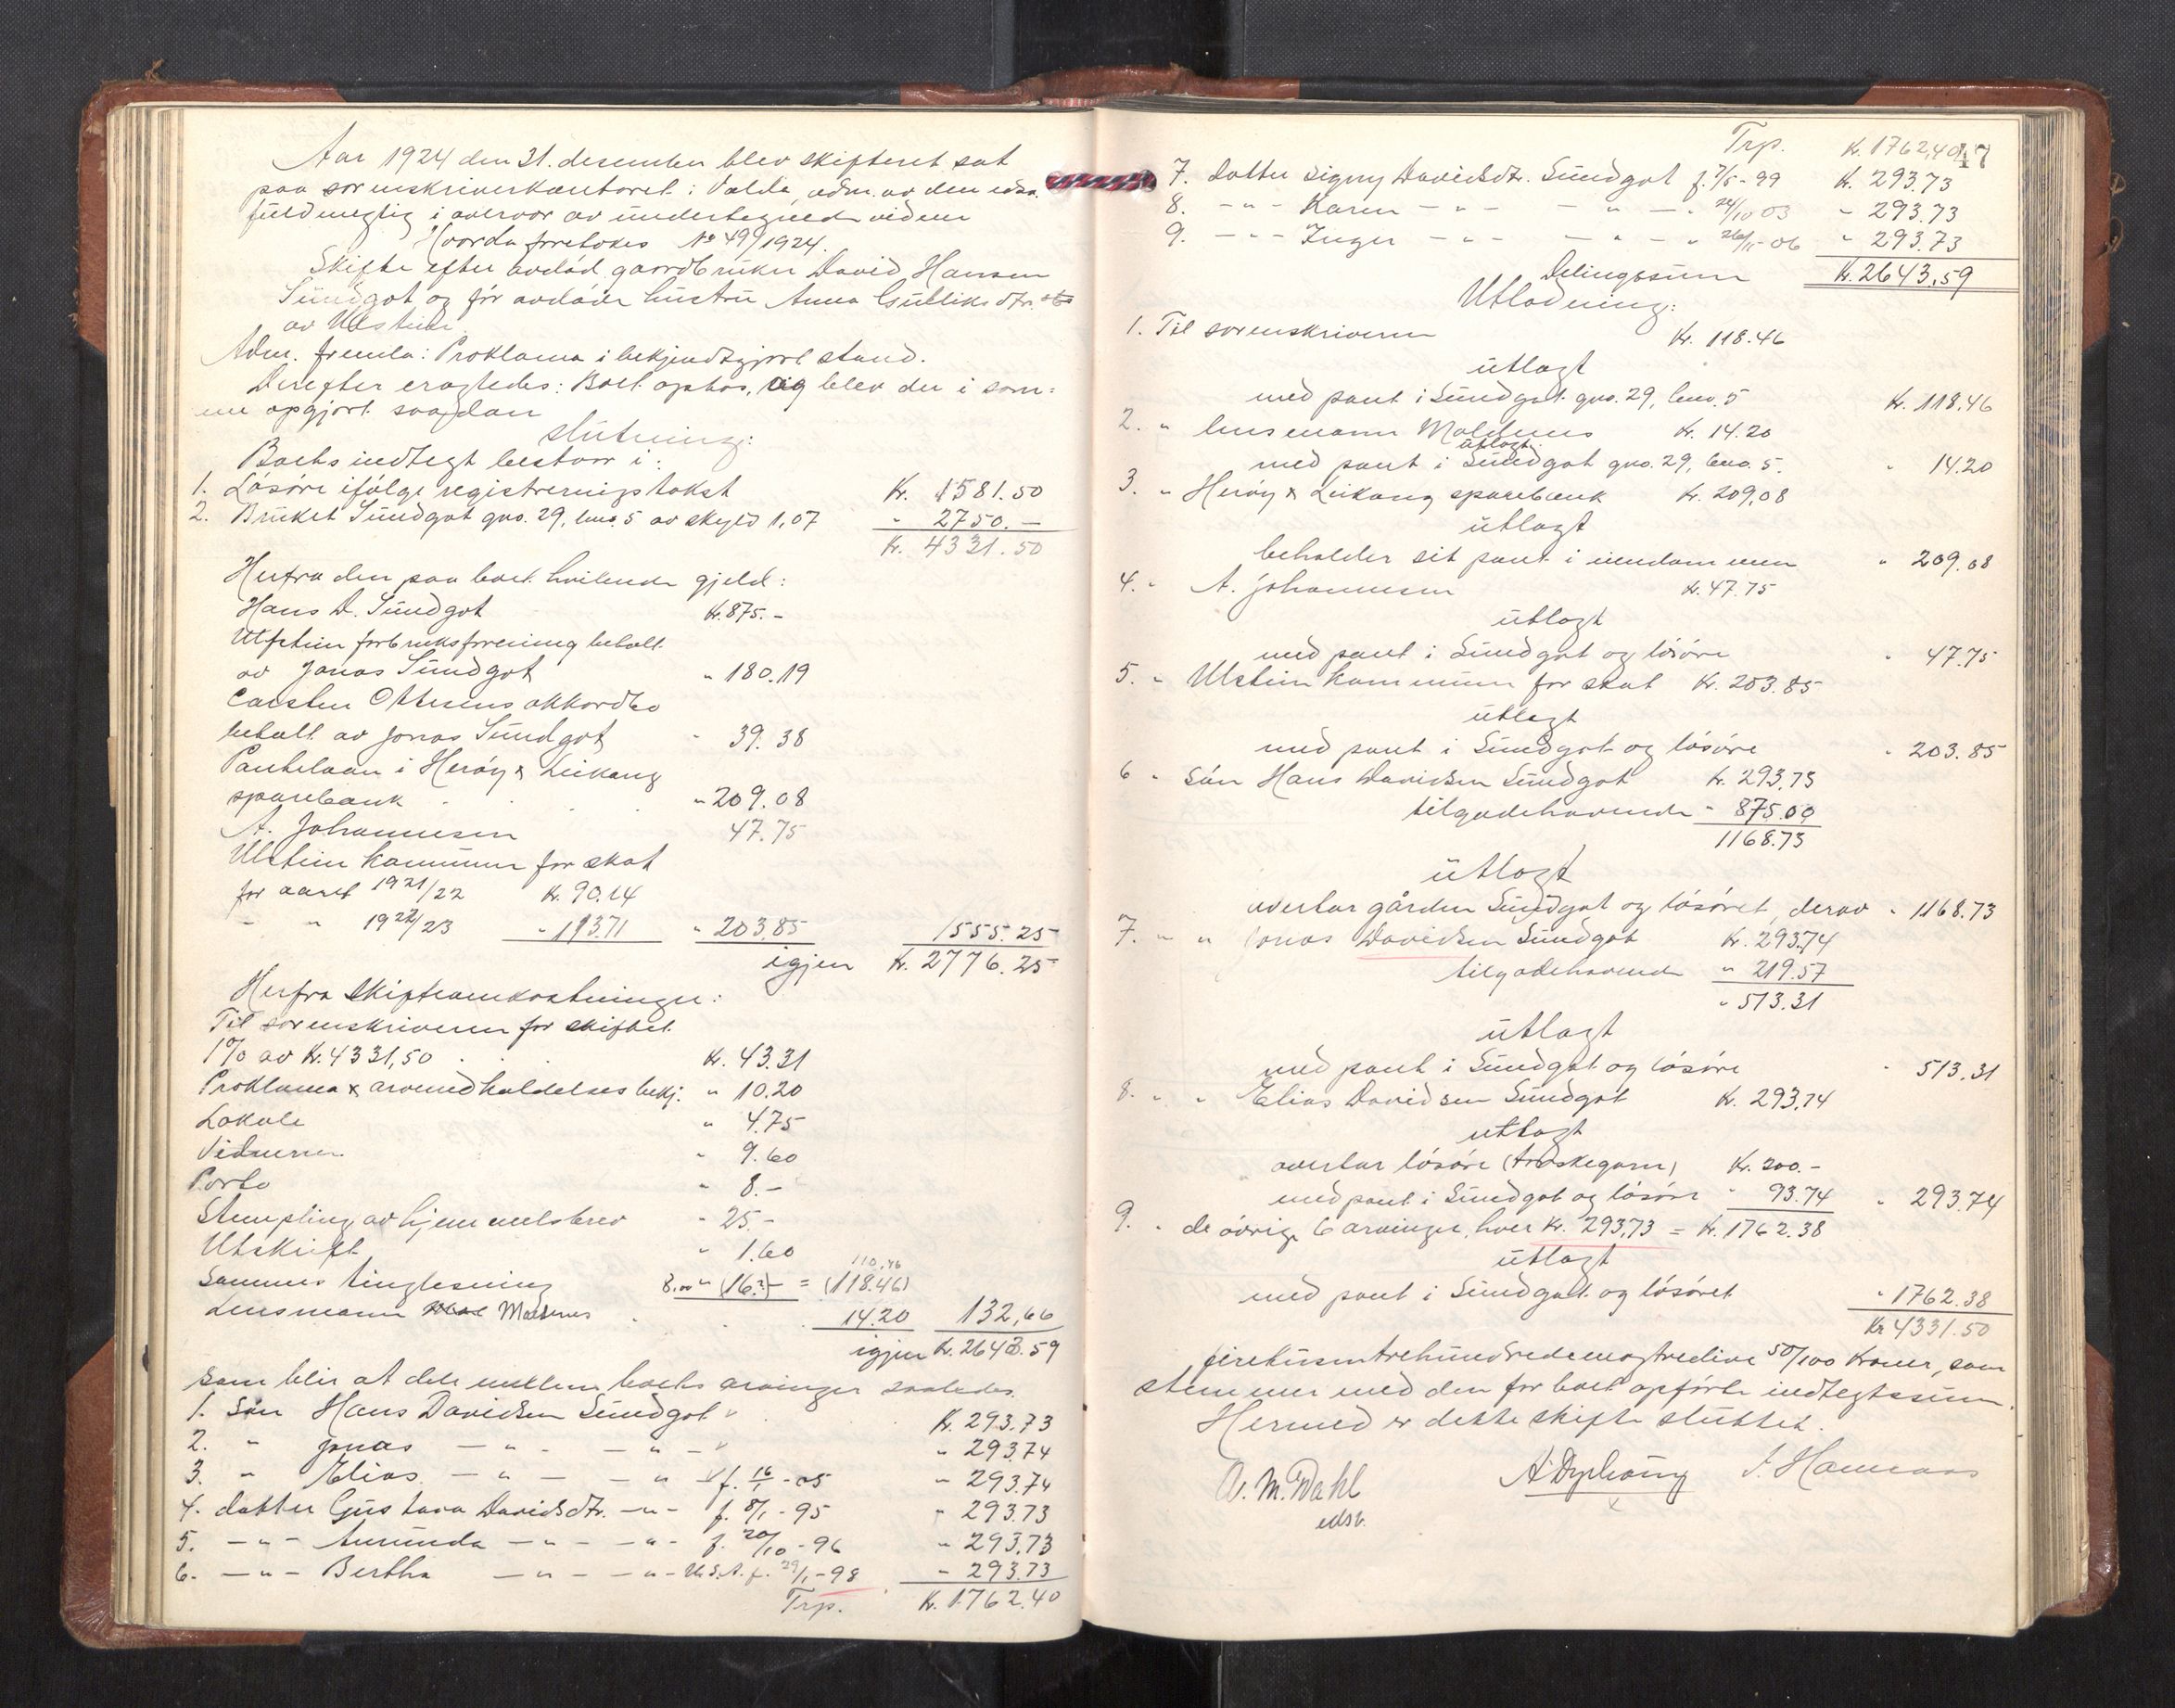 Aar 1924 den 31. desember blev skifteret sat
paa sorenskriverkontoret i Volda, adm. av den edsv.
fuldmegtig i overvær av undertegnede vidner
Hvorda forretokes No 49/1924.
Skifte efter avdød gaardbruker David Hansen
Sundgot og før avdøde hustru Anna Gulliksdtr.
av Ulstein.
Adm. fremla: Proklama i bekjendtgjort stand.
Derefter eragtedes: Boet optas, og blev der i sam=
me opgjort saadan
slutning:
Boets indtegt bestaar i:
1. Løsøre ifølge registreringstakst Kr. 1581.50
2. Bruket Sundgot gno. 29, bno. 5 av skyld 1,07 " 2750.—
Kr. 4331.50
Herfra den paa boet hvilende gjeld:
Hans D. Sundgot Kr. 875.-
Ulstein forbruksforening betalt
av Jonas Sundgot " 180.19
Carsten Ottesens akkordbo
betalt av Jonas Sundgot " 39.38
Pantelaan i Herøy & Leikang
sparebank " 209.08
A. Johannesen 47.75
Ulstein kommune for skat
for aaret 1921/22 Kr. 90.14
- " 1922/23 " 113.71 " 203.85 1555.25
igjen Kr. 2776.25
Herfra skifteomkostninger:
Til sorenskriveren for skiftet
1% av Kr. 4331,50 Kr. 43.31
Proklama & arvemedholdelses bekj. " 10.20
Lokale " 4.75
Vidnerne " 9.60
Porto " 8.-
Stempling av hjemmelsbrev " 25.-
Utskrift " 1.60
110,46
Sammes tinglesning 8,00 " (16.-) = (118.46)
Lensmann Moldenes 14.20 132,66
igjen Kr. 2643.59
som blir at dele mellem boets arvinger saaledes.
1. Søn Hans Davidsen Sundgot Kr. 293.73
2. " Jonas — " — — " — " 293.74
3. " Elias — " — — " f. 16/1 - 05 " 293.74
4. datter Gustava Davidsdtr. — " — f. 8/1 - 95 " 293.73
5. — " — Amunda — " — — " — f. 20/10 - 96 " 293.73
6. — " — Bertha — " — — " — U.S.A. f. 29/1 - 98 " 293.73
Trp. Kr. 1762.40
47
Trp. Kr. 1762,40
7. datter Signy Davidsdtr. Sundgot f. 7/5 - 99 Kr. 293.73
8. — " — Karen — " — — " — " 24/10 03 " 293.73
9. — " — Inger — " — — " — " 06 " 293.73
Delingssum Kr. 2643,59
Utlodning:
1. Til sorenskriveren Kr. 118.46
utlagt
med pant i Sundgot gno. 29, bno. 5 Kr. 118.46
2. " lensmann Moldenes Kr. 14.20
utlagt
med pant i Sundgot gno. 29, bno. 5. " 14.20
3. " Herøy & Leikang sparebank Kr. 209,08
utlagt
beholder sit pant i eiendommen " 209.08
4. " A. Johannesen Kr. 47.75
utlagt
med pant i Sundgot og løsøre " 47.75
5. " Ulstein kommune for skat Kr. 203.85
utlagt
med pant i Sundgot og løsøre " 203.85
6 " søn Hans Davidsen Sundgot Kr. 293,73
tilgodehavende " 875.00
1168.73
utlagt
overtar gården Sundgot og løsøret, derav " 1168.73
7. " " Jonas Davidsen Sundgot Kr. 293.74
tilgodehavende " 219.57
" 513.31
utlagt
med pant i Sundgot og løsøre " 513.31
8. " " Elias Davidsen Sundgot Kr. 293.74
utlagt
overtar løsøre (torskegarn) Kr. 200.-
med pant i Sundgot og løsøre " 93.74 " 293.74
9. " de øvrige 6 arvinger, hver Kr. 293,73 = Kr. 1762.38
utlagt
med pant i Sundgot og løsøret " 1762.38
Kr 4331.50
firetusentrehundredeenogtredive 50/100 kroner, som
stemmer med den for boet opførte indtegtssum.
Hermed er dette skifte sluttet.
A. M. Dahl
edsv.